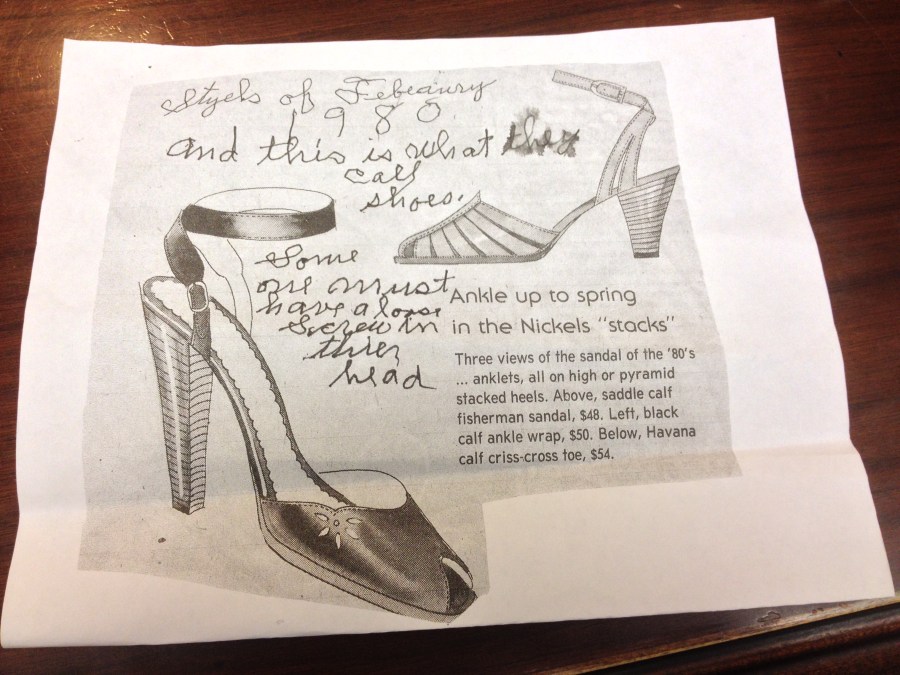 Styels of Febeaury
1980
and this is what they
call
shoes.
Some
one must
have a loose
Screw in
thier
head
Ankle up to spring
in the Nickels "stacks"
Three views of the sandal of the '80's
... anklets, all on high or pyramid
stacked heels. Above, saddle calf
fisherman sandal, $48. Left, black
calf ankle wrap, $50. Below, Havana
calf criss-cross toe, $54.